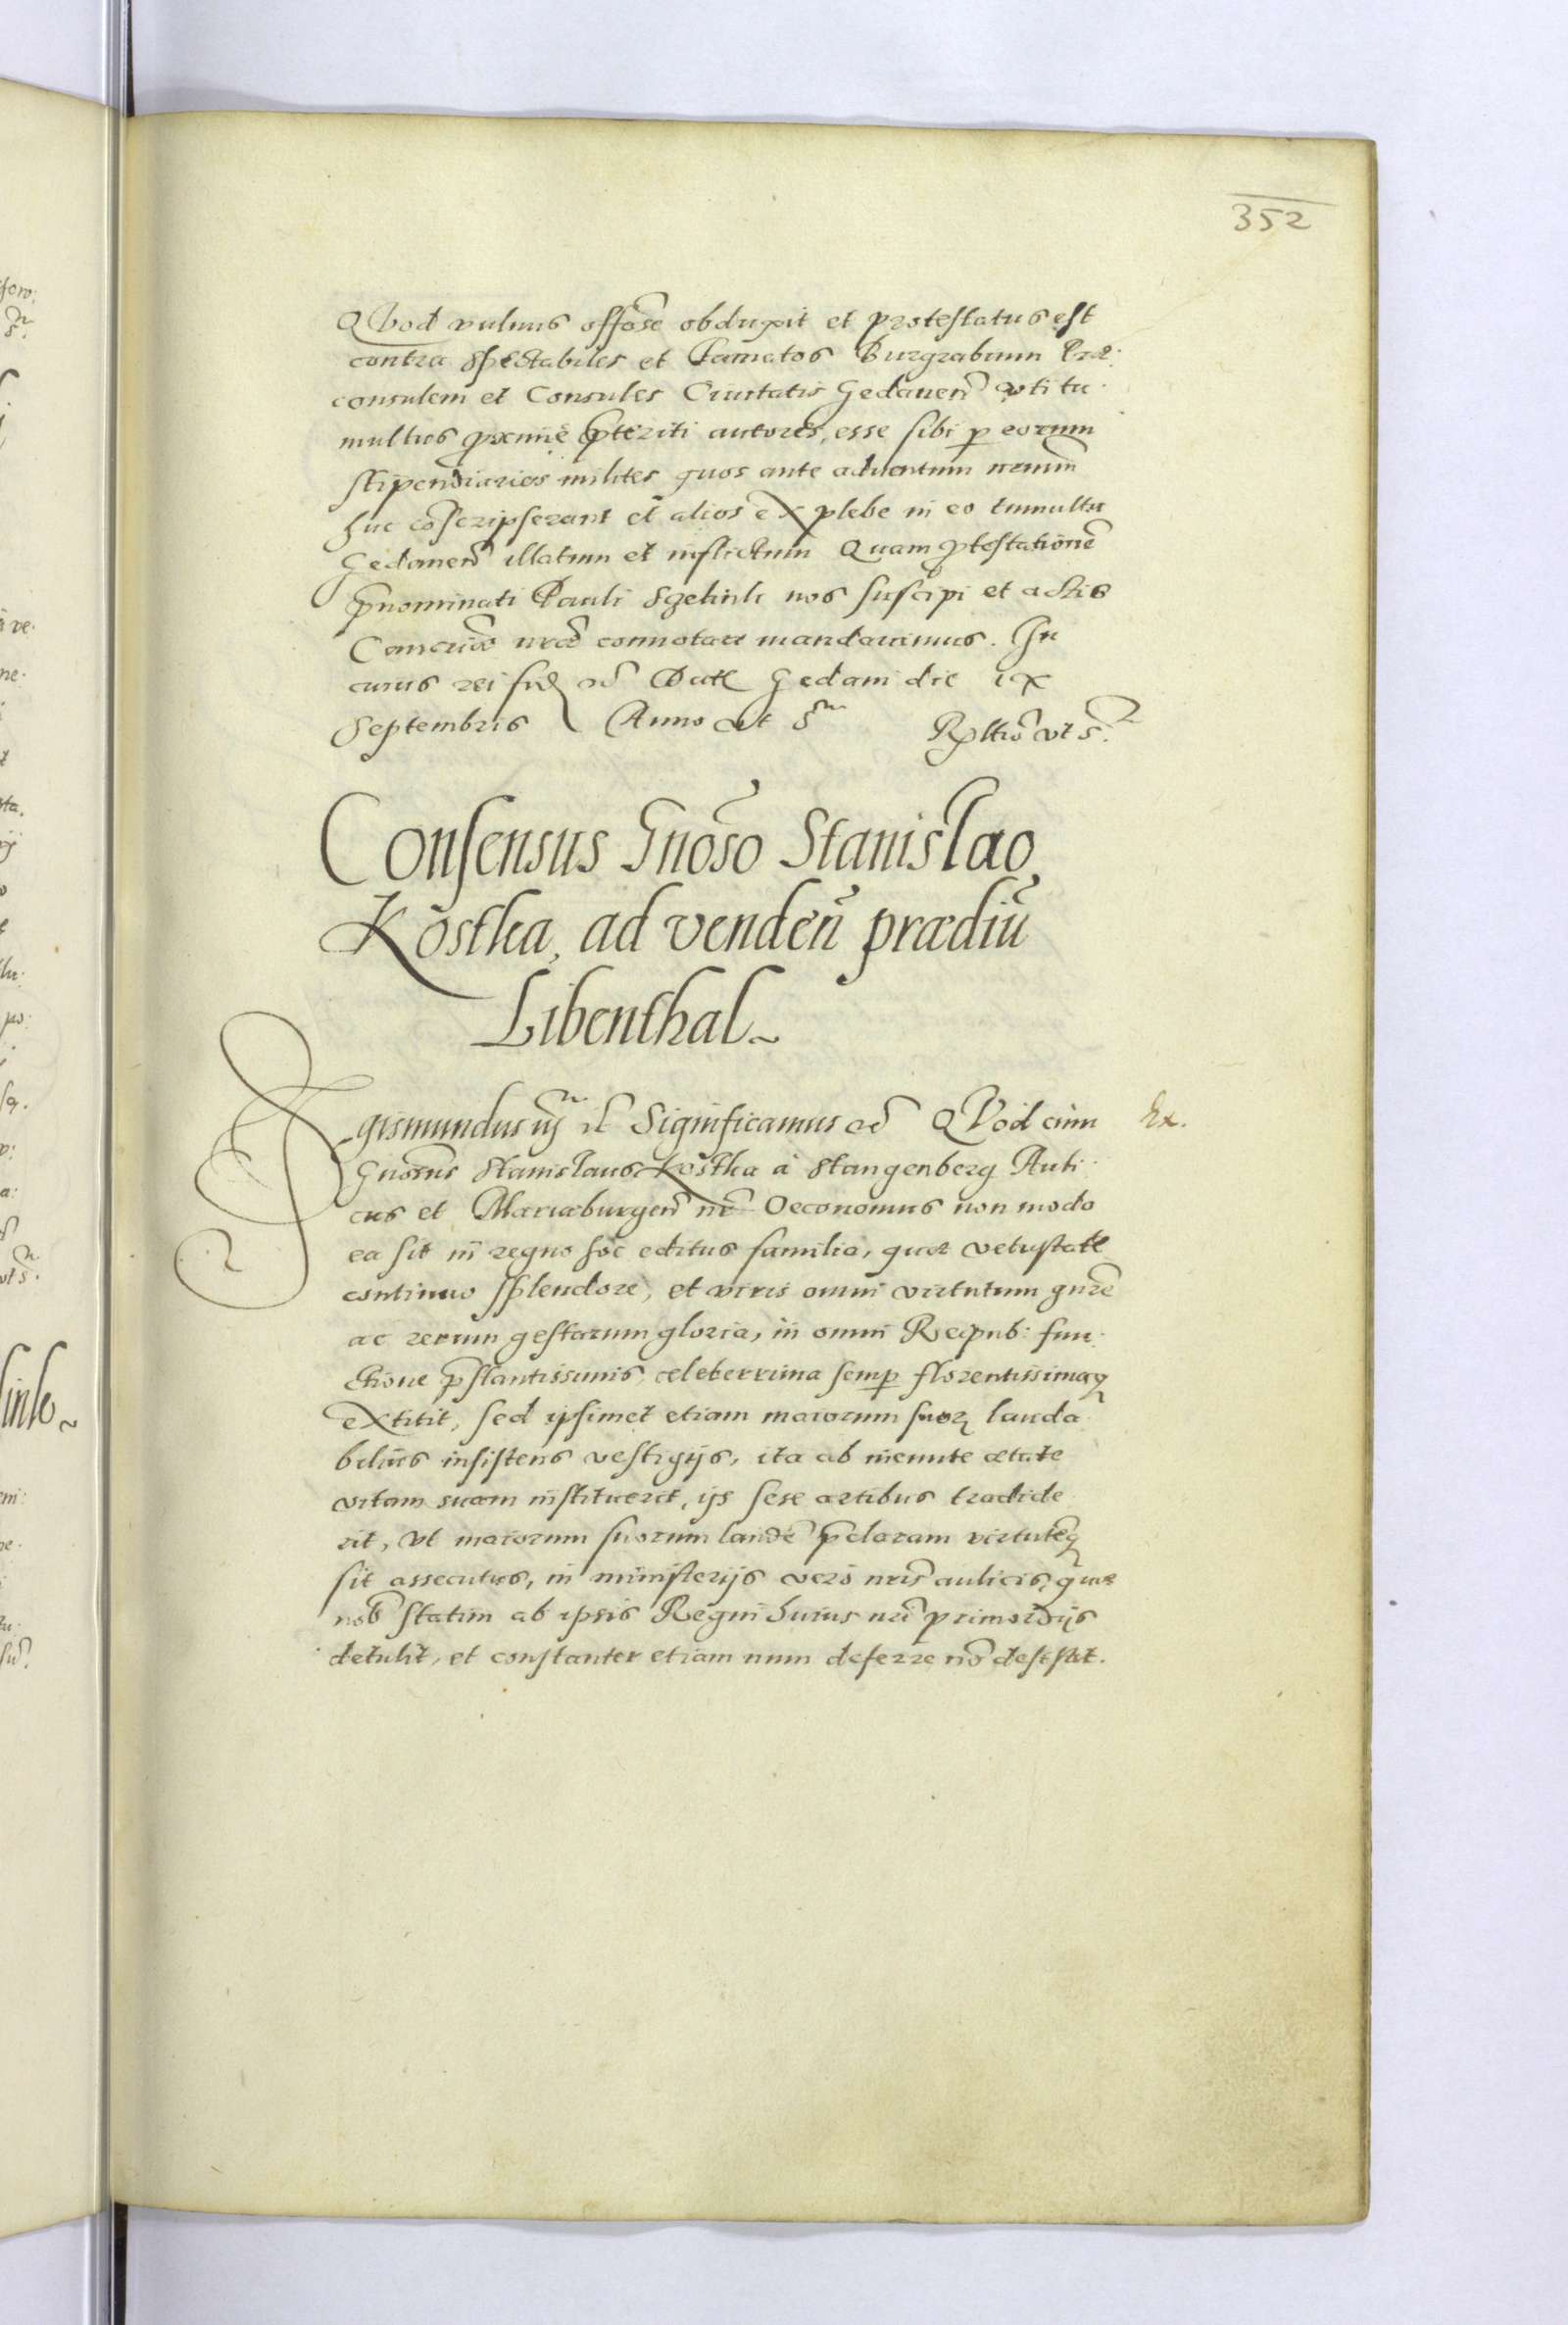 352
QVod vulnus offose obduxit et protestatus est
contra spectabiles et famatos Burgrabium Prae:
consulem et Consules Ciuitatis Gedanen̄ vti tu:
multus proxime p̄teriti autores, esse sibi p eorum
stipendiarios milites quos ante aduentum nrum̄
huc cōscripserant et alios ex plebe in eo tumultu
Gedanen̄ illatum et inflictum Quam p̄testationē
p̄nominati Pauli nos suscipi et actis
Cancriæ nrae connotare mandauimus. In
cuius rei fid Dat Gedani die ix
Septembris Anno vt s
Rltio vt s.
Consensus Gnōso Stanislao
Kostka, ad venden̄ prædiū
Libenthal~
Sigismundus iij Significamus QVod cum
Ex.
Gnosus Stanislaus Kostka à Stangenberg Auli:
cus et Mariæburgen̄ nr̄ Oeconomus non modo
ea sit in regno hoc editus familia, quæ vetustate
continuo splendore, et viris omni virtutum gnre
ac rerum gestarum gloria, in omni Reipub: fun:
ctione p̄stantissimis, celeberrima semp florentissimaq
extitit, sed ipsimet etiam maiorum suor lauda
bilius insistens vestigijs, ita ab ineunte ætate
vitam suam instituerit, ijs sese artibus tradide
rit, vt maiorum suorum laudē p̄claram virtutēq
sit assecutus, in ministerijs vero nris aulicis, quæ
nob statim ab ipsis Regni huius nri primordijs
detulit, et constanter etiam num deferre nō desistit.